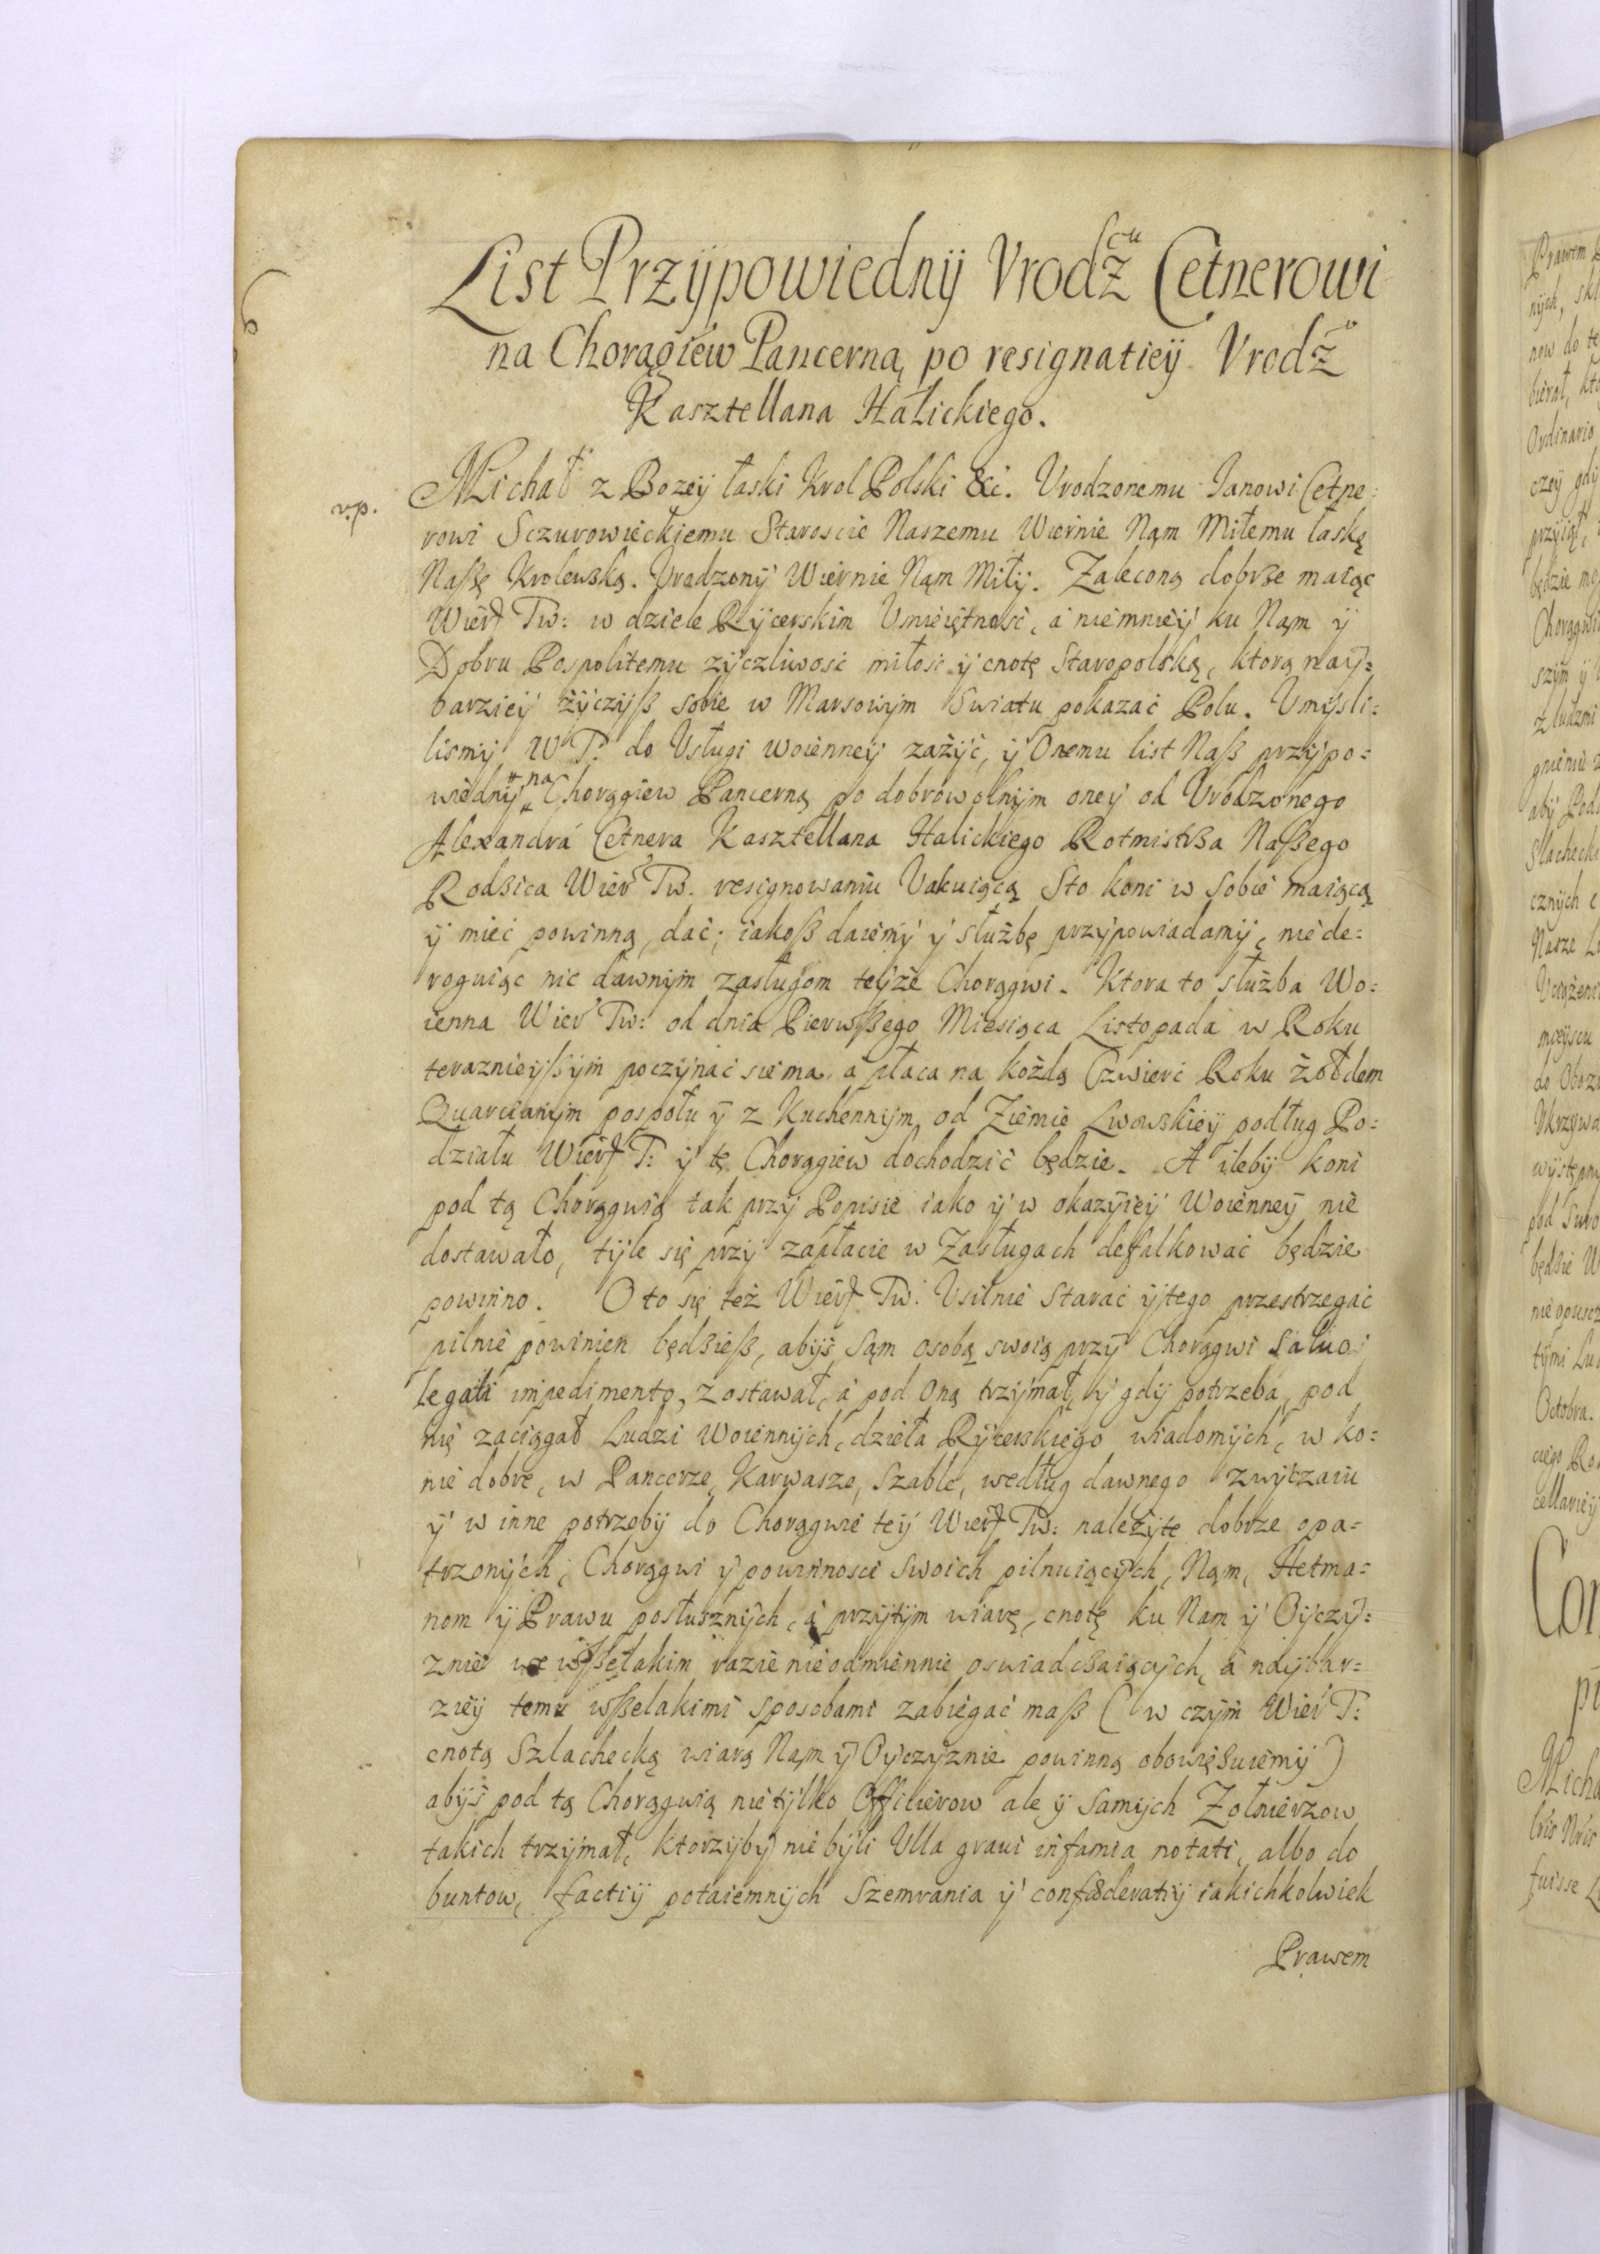 List Przÿpowiednÿ Vrodz̃cu Cetnerowi
na Chorągiew Pancerną po resignatieÿ Vrodz̃o
Kasztellana Halickiego.
Michał z Bozeÿ łaski Krol Polski &c. Vrodzonemu Janowi Cetne=
v.p.
rowi Sczurowieckiemu Staroscie Naszemu Wiernie Nąm Miłemu łaskę
Naßę Krolewską. Vrodzonÿ Wiernie Nąm Miłÿ. Zaleconą dobrze maiąc
Wierṫ Tw: w dziele Rÿcerskim Vmieiętność, á niemnieÿ ku Nąm ÿ
Dobru Pospolitemu zÿczliwosć miłosć ÿ cnotę Staropolską, ktorą naÿ=
barzieÿ żÿczÿß sobie w Marsowÿm Swiatu pokazać Polu. Vmÿsli=
lismÿ W T: do Vsługi woienneÿ zażÿć, ÿ Onemu list Naß przÿpo=
wiednÿ na Chorągiew Pancerną po dobrowolnÿm oneÿ od Vrodzonego
Alexandrá Cetnera Kasztellana Halickiego Rotmistrßa Naßego
Rodßica Wier Tw. resignowaniu Vakuiącą Sto koni w sobie maiącą
ÿ mieć powinną, dać; iakoß daiemÿ ÿ służbę przÿpowiadamÿ, nie de=
roguiąc nic dawnÿm zasługom teÿże Chorągwi. Ktora to służba Wo=
ienna Wier Tw: od dnia Pierwßego Miesiąca Listopada w Roku
teraznieÿßÿm poczÿnać sie ma, á płaca na kożdą Czwierć Roku żołdem
Quarcianÿm pospołu ÿ z Kuchennÿm, od Ziemie Lwowskieÿ podług Po=
działu Wierṫ T: ÿ tę Chorągiew dochodzić będzie. A ileby koni
pod tą Chorągwią tak przÿ Popisie iako ÿ w okazÿieÿ Woienneÿ nie
dostawało, tÿle się przÿ zapłacie w Zasługach defalkować będzie
powinno. O to się też Wierṫ Tw: Vsilnie starać ÿ tego przestrzegać
pilnie powinien będßieß, abÿś sąm osobą swoią przÿ Chorągwi Saluo
legali impedimento, zostawał, á pod oną trzÿmał, ÿ gdÿ potrzeba, pod
nię zaciągał Ludzi Woiennÿch, dzieła Rÿcerskiego wiadomÿch, w ko=
nie dobre, w Pancerze, Karwasze, Szable, według dawnego zwÿczaiu
ÿ w inne potrzebÿ do Chorągwie teÿ Wierṫ Tw: należÿte dobrze opa=
trzonÿch; Chorągwi ÿ powinnosci swoich pilnuiącÿch, Nąm, Hetma=
nom ÿ Prawu posłusznÿch, á przÿtÿm wiarę, cnotę ku Nam ÿ Oÿczÿ=
znie we wßelakim razie nieodmiennie oswiadcßaiącÿch, á naÿbar=
zieÿ temu wßelakimi sposobami zabiegać maß (w czÿm Wier T:
cnotą Szlachecką wiarą Nąm ÿ Oÿczÿznie powinną obowięßuiemÿ)
abÿś pod tą Chorągwią nie tÿlko Officierow ale ÿ samÿch Zołnierzow
takich trzÿmał, ktorzÿbÿ nie bÿli Vlla graui infamia notati, albo do
buntow, factiÿ potaiemnÿch szemrania ÿ confœderatiÿ iakichkolwiek
Prawem